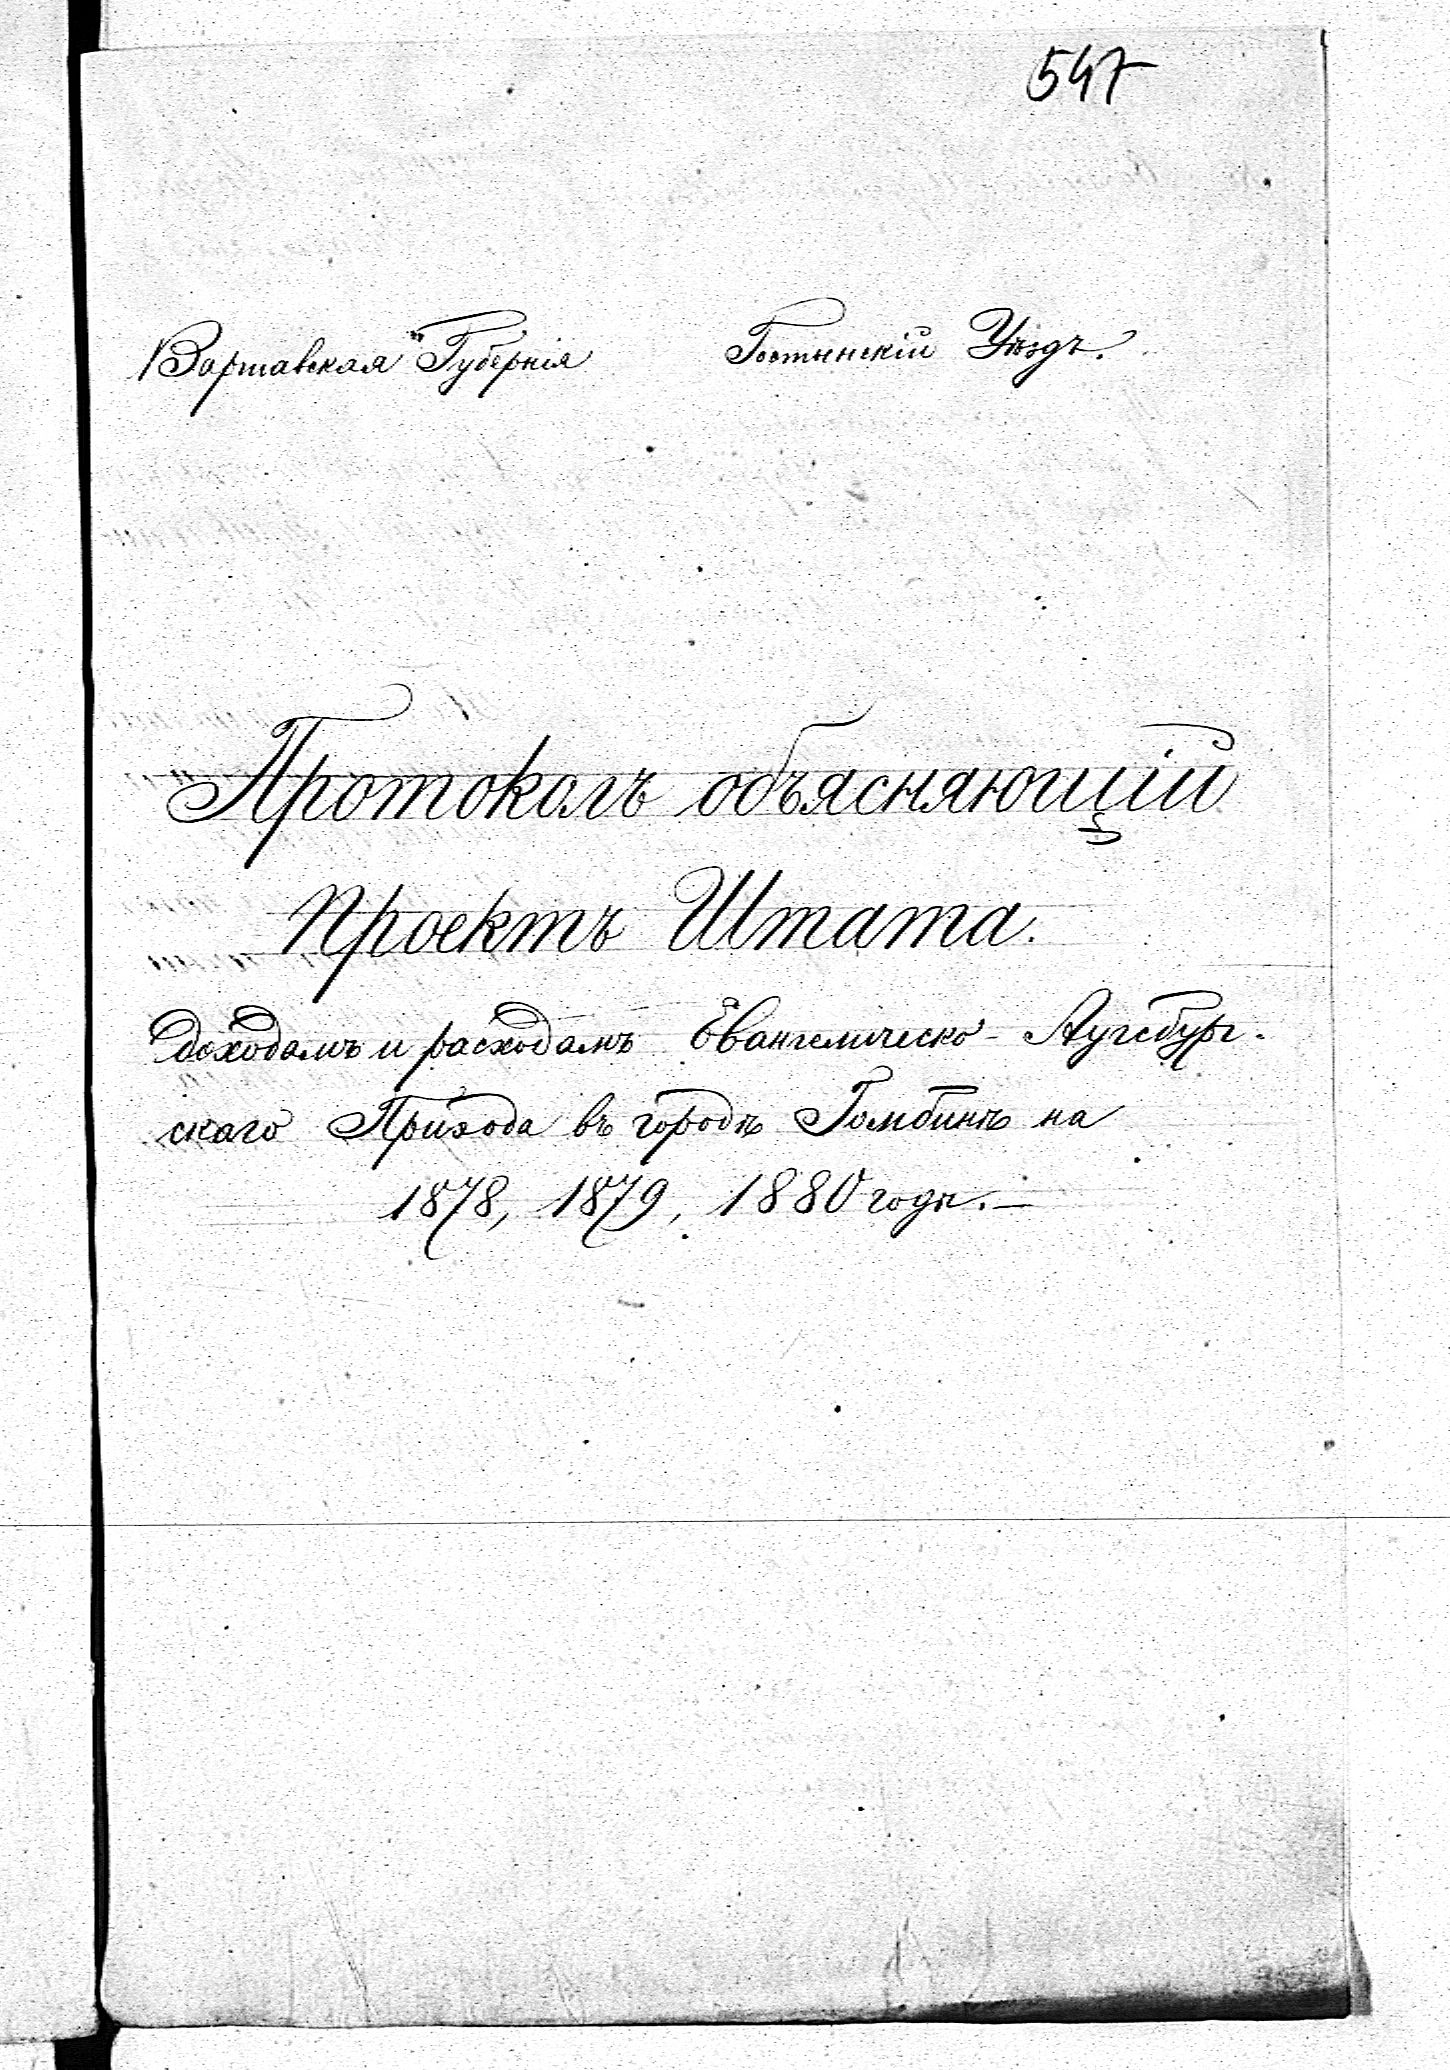 547
Варшавская Губернія Гостынскій Уѣздъ.
Протоколъ объясняющій
Проектъ Штата.
доходамъ и расходамъ Евангелическо-Аугсбург-
скаго Прихода въ городѣ Гомбинѣ на
1878, 1879, 1880 годы.—